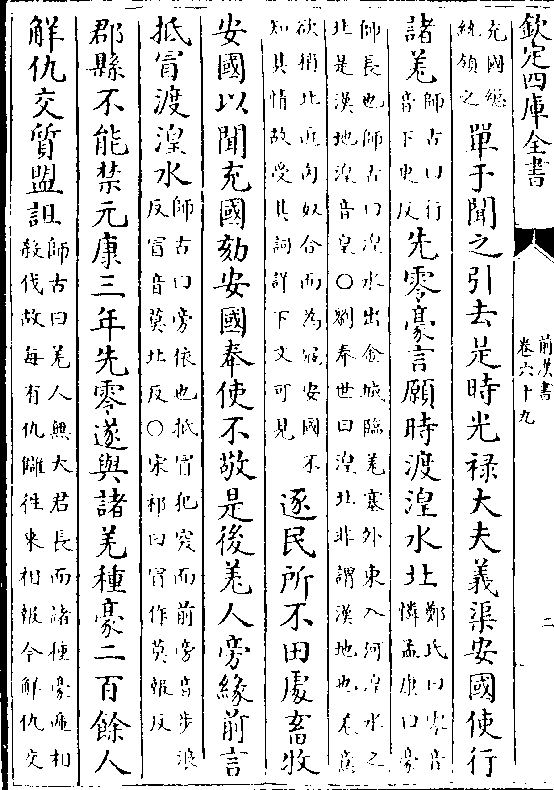 欽定四庫全書
前漢書
卷六十九
二
充國總
統領之
單于聞之引去是時光禄大夫義渠安國使行
諸羌
師古曰行
音下更反
先零豪言願時渡湟水北
鄭氏曰零音
憐孟康曰豪
帥長也師古曰湟水出金城臨羌塞外東入河湟水之
北是漢地湟音皇〇劉奉世曰湟北非謂漢地也羌意
欲稍北近匈奴合而為寇安國不
知其情故受其詞詳下文可見
逐民所不田處畜牧
安國以聞充國劾安國奉使不敬是後羌人旁緣前言
抵冒渡湟水
師古曰旁依也抵冒犯突而前旁音步浪
反冒音莫北反〇宋祁曰冒作莫報反
郡縣不能禁元康三年先零遂與諸羌種豪二百餘人
解仇交質盟詛
師古曰羌人無大君長而諸種豪遞相
殺伐故每有仇讎往來相報今解仇交